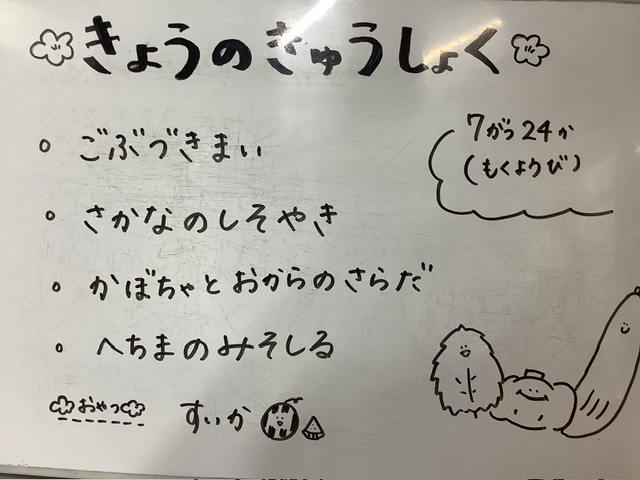 きょうのきゅうしょく
7がつ24か
(もくようび)
ごぶづきまい
さかなのしそやき
かぼちゃとおからのさらだ
へちまのみそしる
おやつ すいか